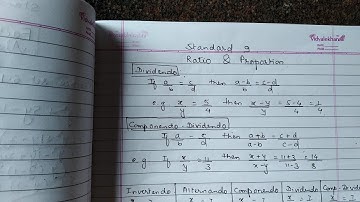 Vidyalekhan
Standard 9
Ratio & Proportion
Dividendo
If a/b = c/d then a-b/b = c-d/d
e.g x/y = 5/4 then x-y/y = 5-4/4 = 1/4
Componendo-Dividendo
If a/b = c/d then a+b/a-b = c+d/c-d
e.g If x/y = 11/3 then x+y/x-y = 11+3/11-3 = 14/8
Invertendo Alternando Componendo Dividendo Comp-Dividendo